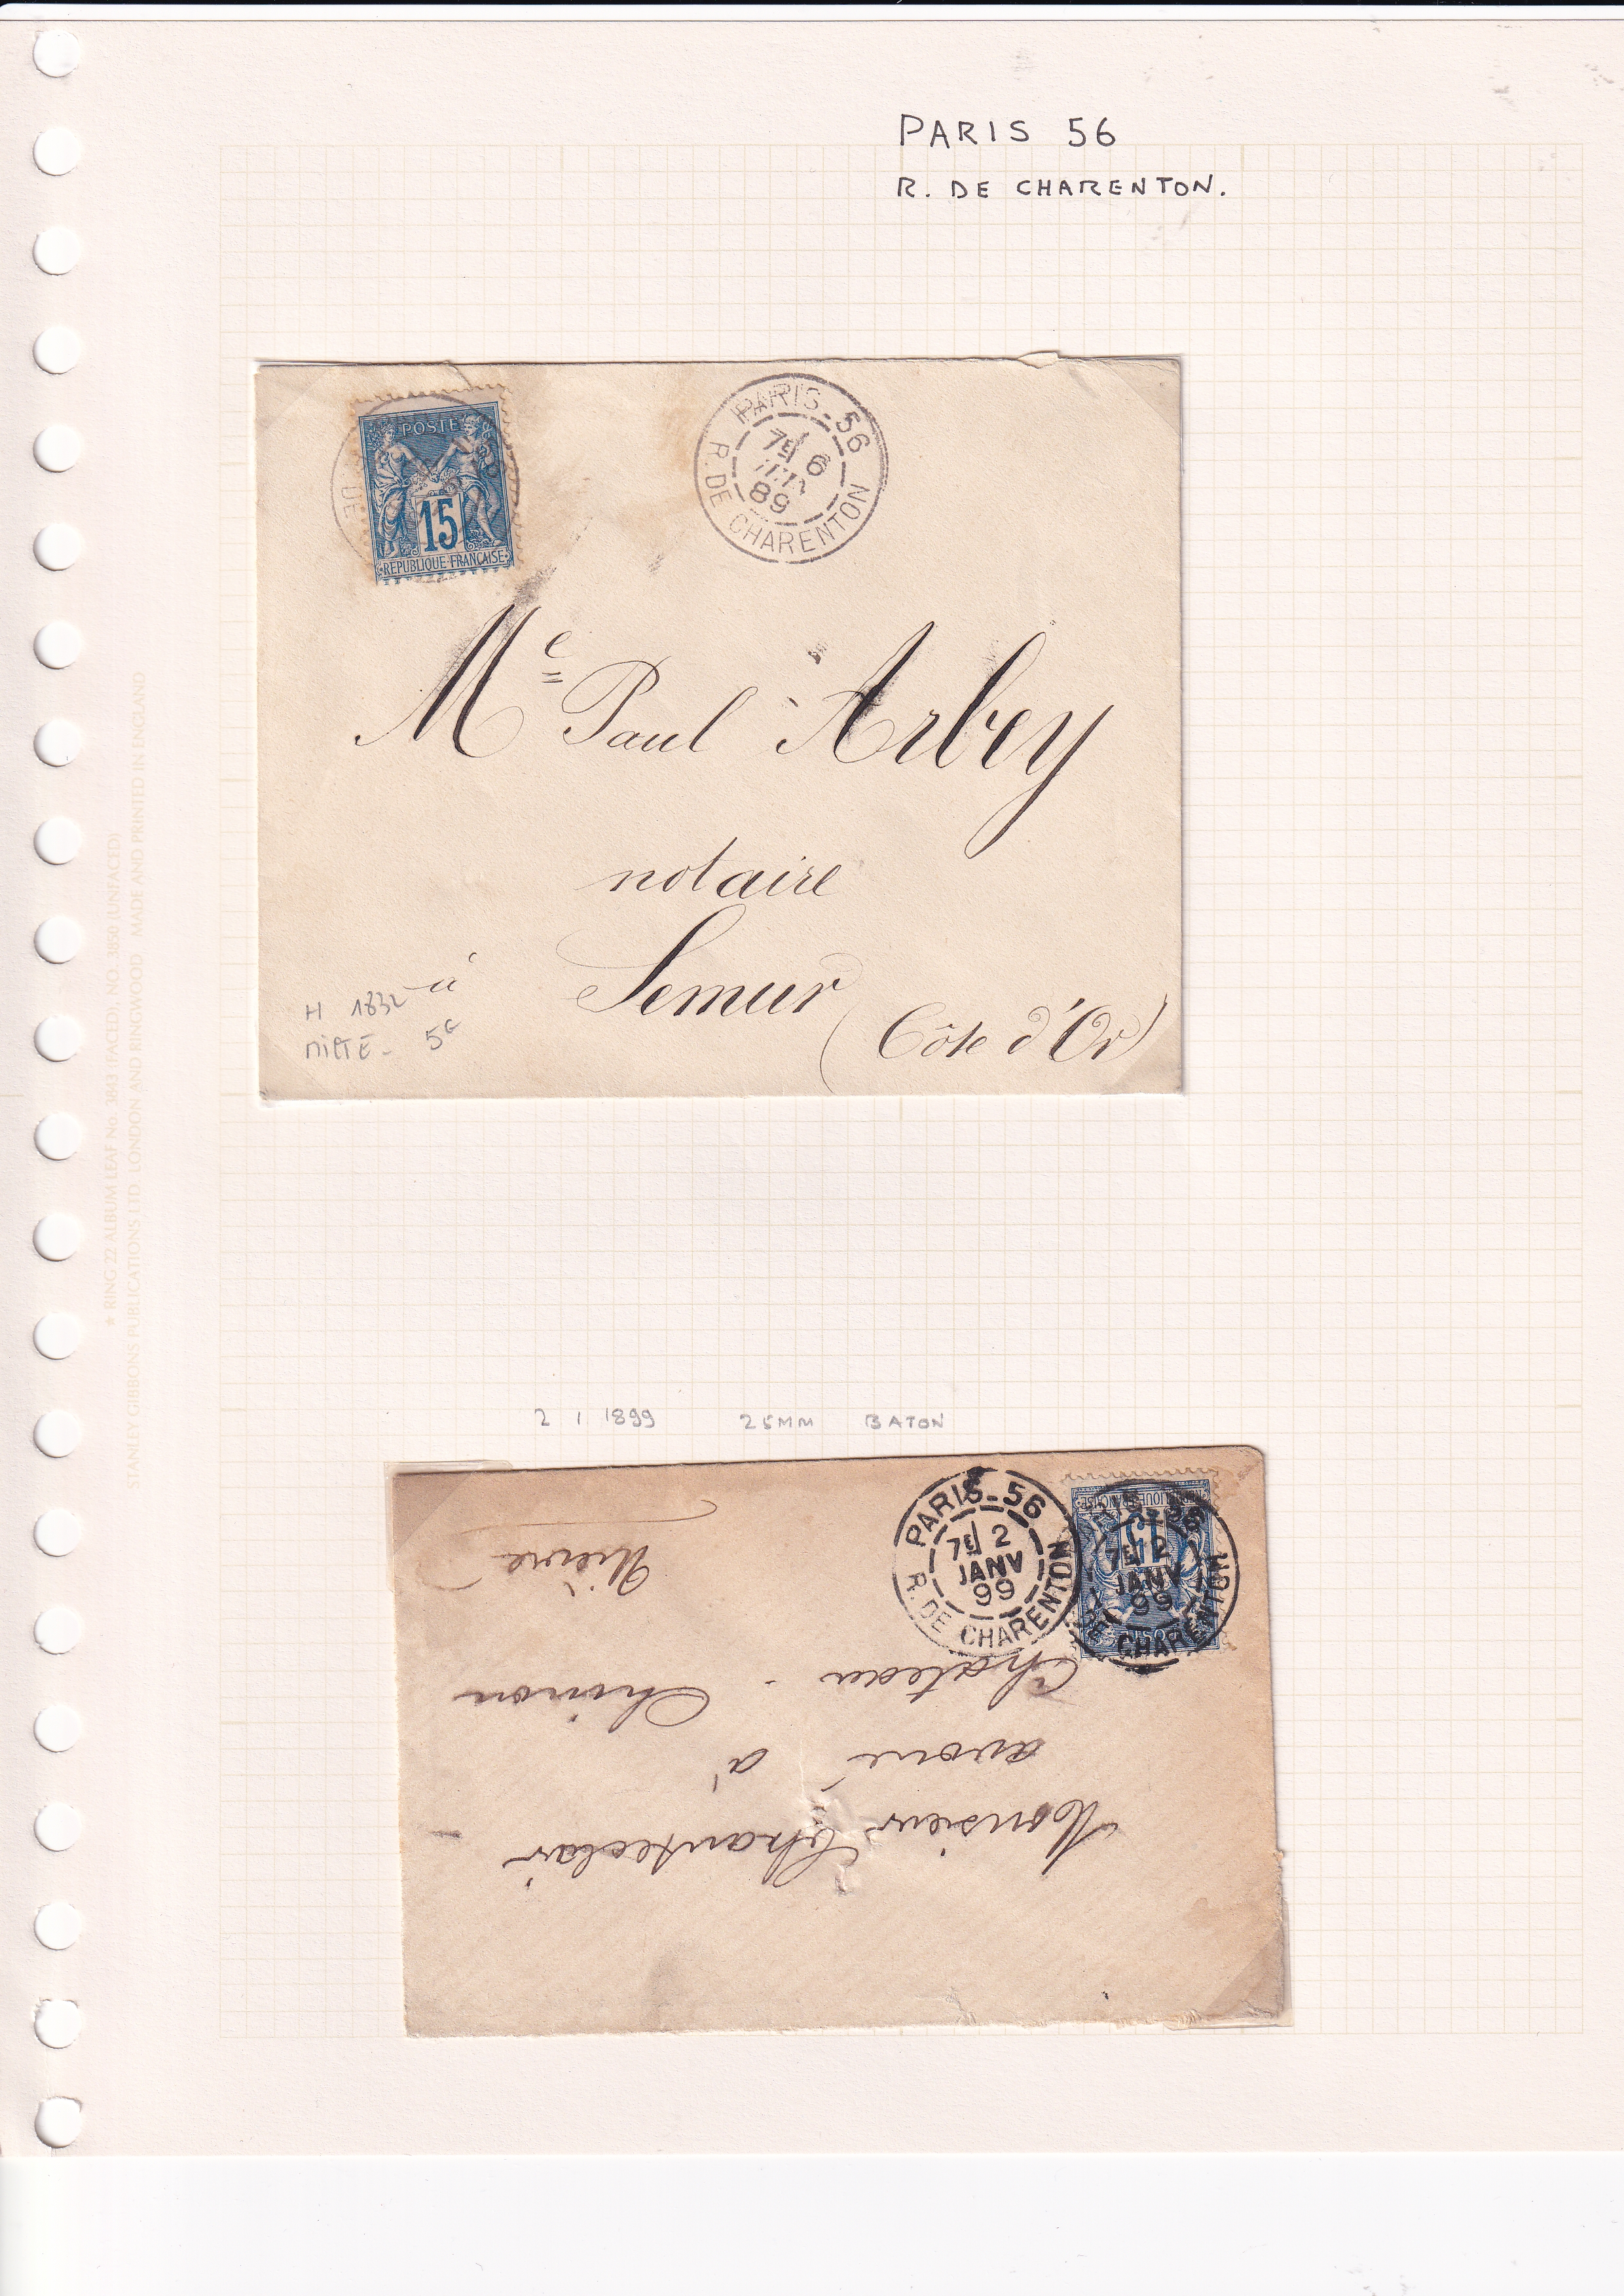 PARIS 56
R. DE CHARENTON.
POSTE
15
REPUBLIQUE FRANÇAISE
DE
PARIS-56
7E 6
89
R. DE CHARENTON
Me Paul Arbey
notaire
à Semur
(Côte d'Or)
H 1832
5€
2 1 1899 25MM BATON
PARIS-56
7E 2
JANV
99
R. DE CHARENTON
7E 2
JANV
99
CHARENTON
15
Monsieur Chanteclair
avoué à
Château-Chinon
Nièvre
★ RING 22 ALBUM LEAF No. 3843 (FACED), NO. 3850 (UNFACED)
STANLEY GIBBONS PUBLICATIONS LTD. LONDON AND RINGWOOD MADE AND PRINTED IN ENGLAND